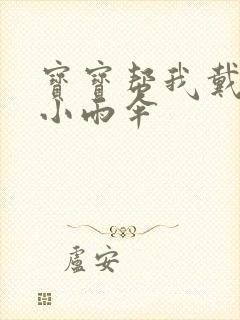 寶寶幫我戴
小雨傘
盧安